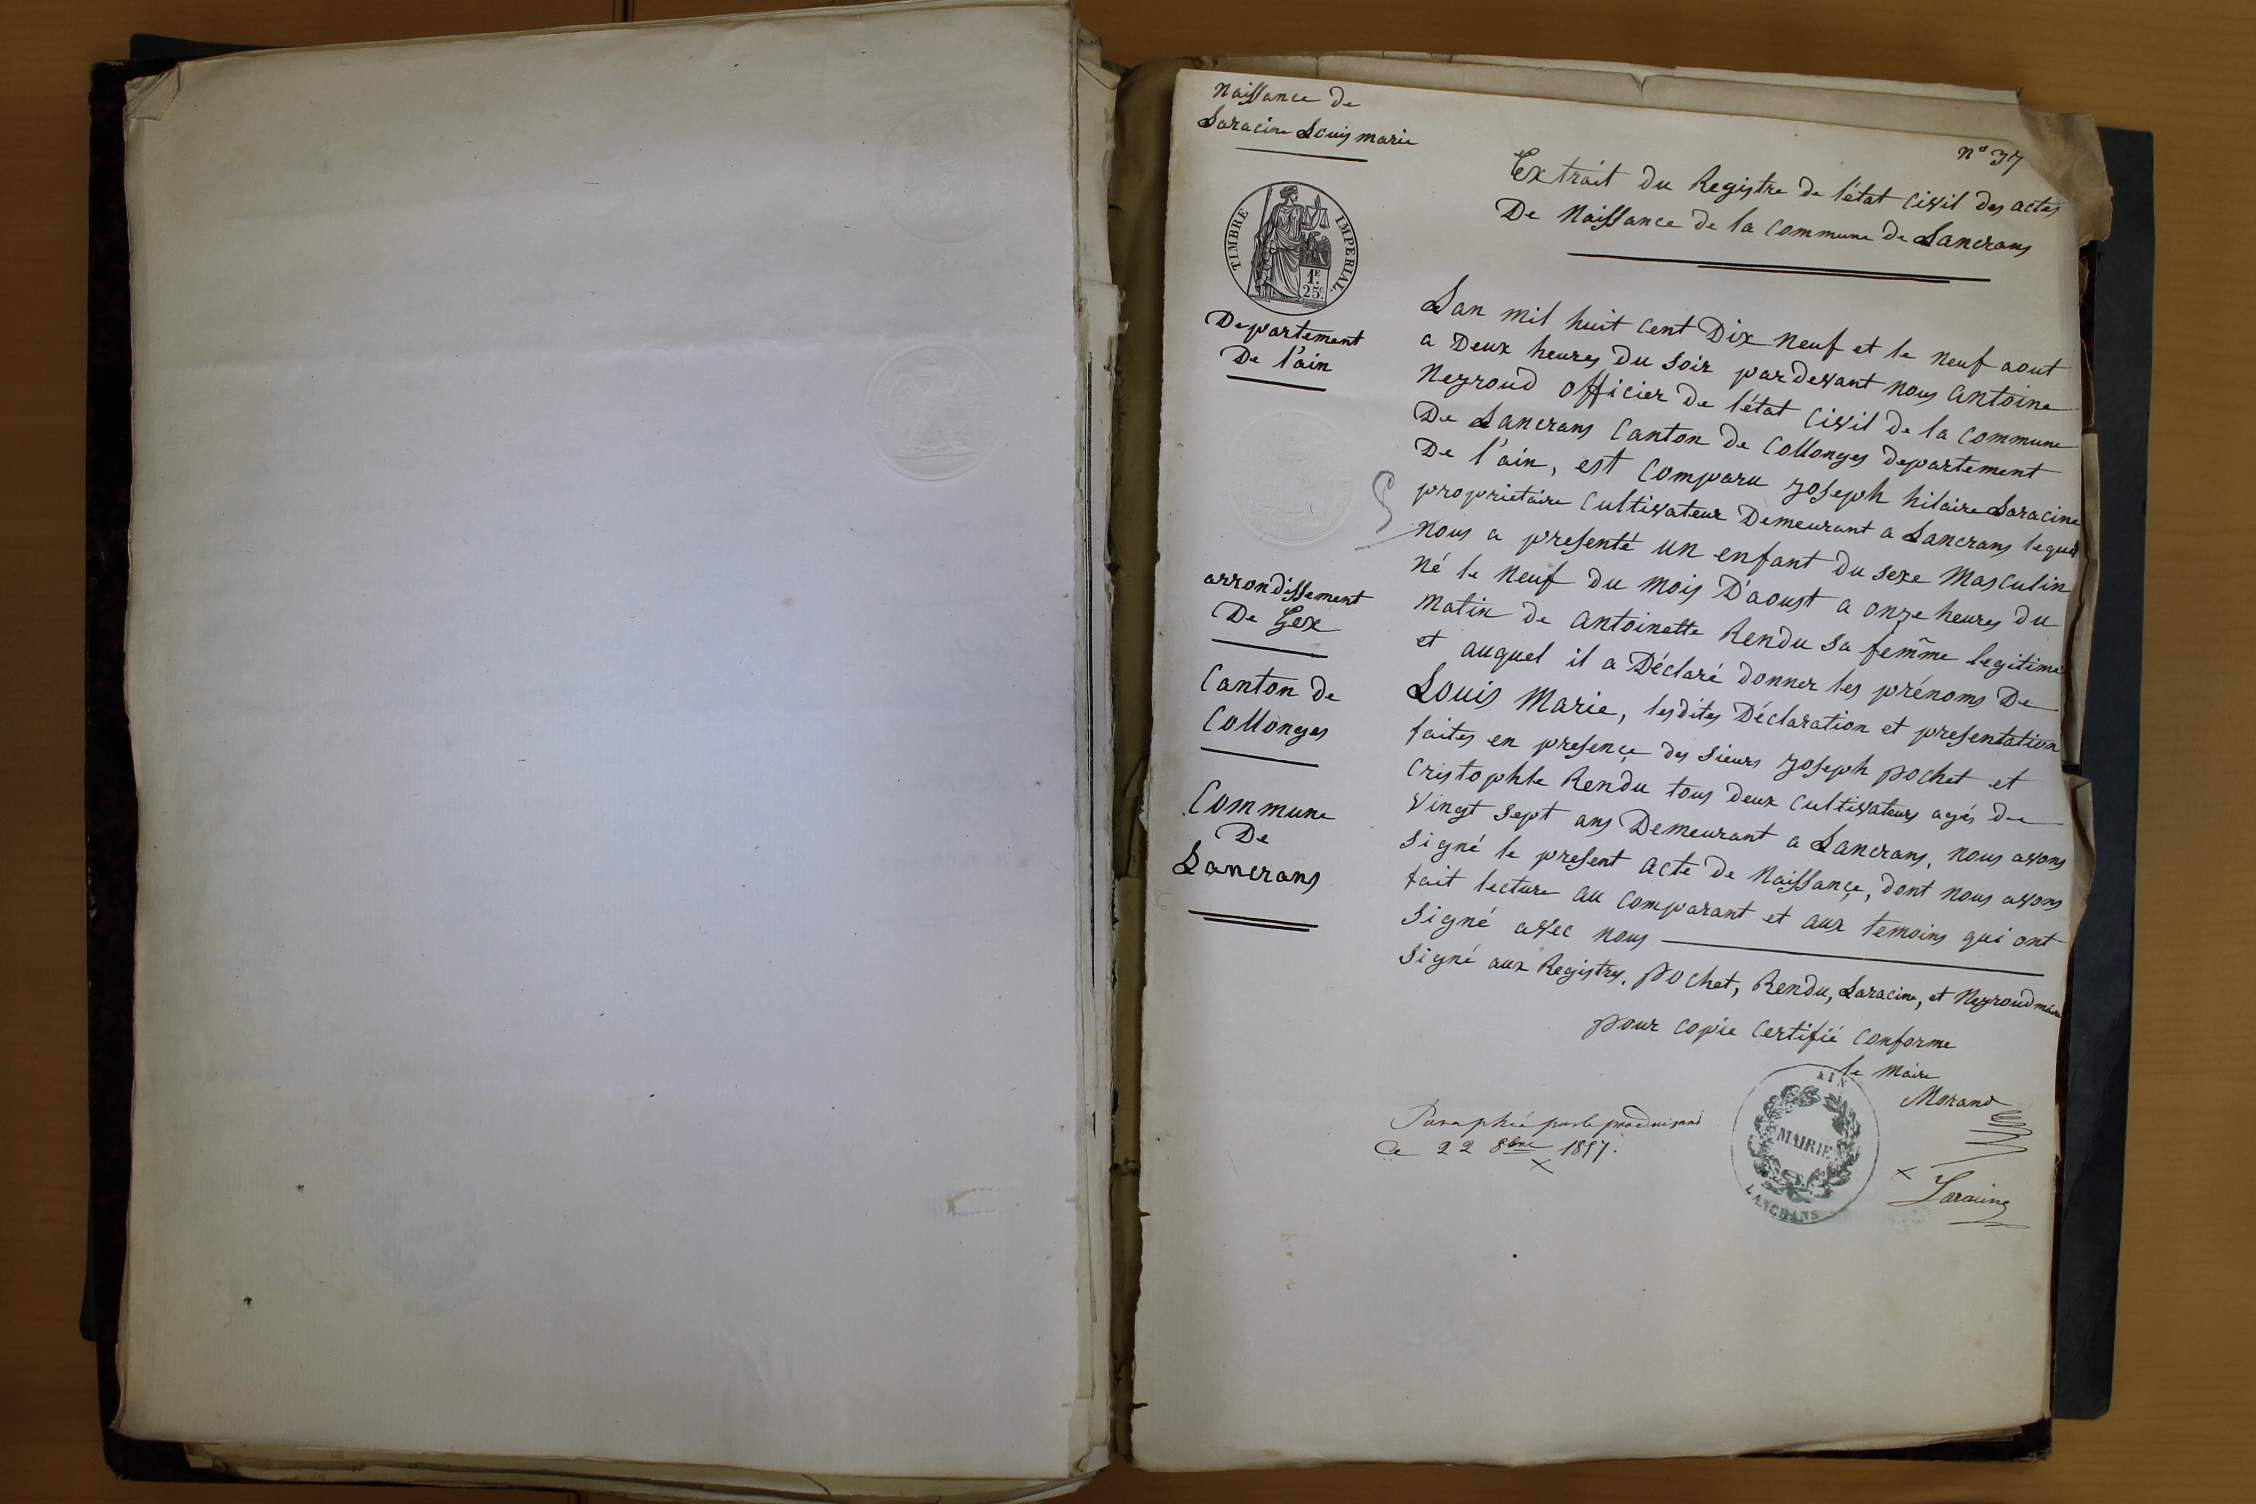 Naissance de
Laracine Louis marie
TIMBRE IMPERIAL
1F
25c
Departement
De l'ain
arrondissement
De Gex
Canton de
Collonges
Commune
De
Lancrans
n° 37
Extrait du Registre de l'état civil des actes
De Naissance de la Commune de Lancrans
Lan mil huit cent Dix Neuf et le Neuf aout
a Deux heures Du soir pardevant nous antoine
Neyroud officier De l'état civil de la Commune
De Lancrans Canton de Collonges Departement
De l'ain, est comparu Joseph hilaire Laracine
proprietaire Cultivateur Demeurant a Lancrans lequel
Nous a presenté un enfant du sexe Masculin
Né le Neuf du Mois D'aoust a onze heures du
Matin de antoinette Rendu sa femme legitime
et auquel il a Déclaré donner les prénoms De
Louis Marie, lesdites Déclaration et presentation
faites en presençe des sieurs Joseph pochet et
Cristophle Rendu tous deux Cultivateurs agés de
Vingt Sept ans Demeurant a Lancrans, nous avons
Signé le present acte de Naissançe, dont nous avons
fait lecture au Comparant et aux temoins qui ont
Signé avec nous
Signé aux Registres, pochet, Rendu, Laracine, et Neyroud maire
pour copie certifié conforme
le Maire
Morand
AIN
MAIRIE
LANCRANS
Paraphé par le produisant
Ce 22 8bre 1857.
x
x Laracine